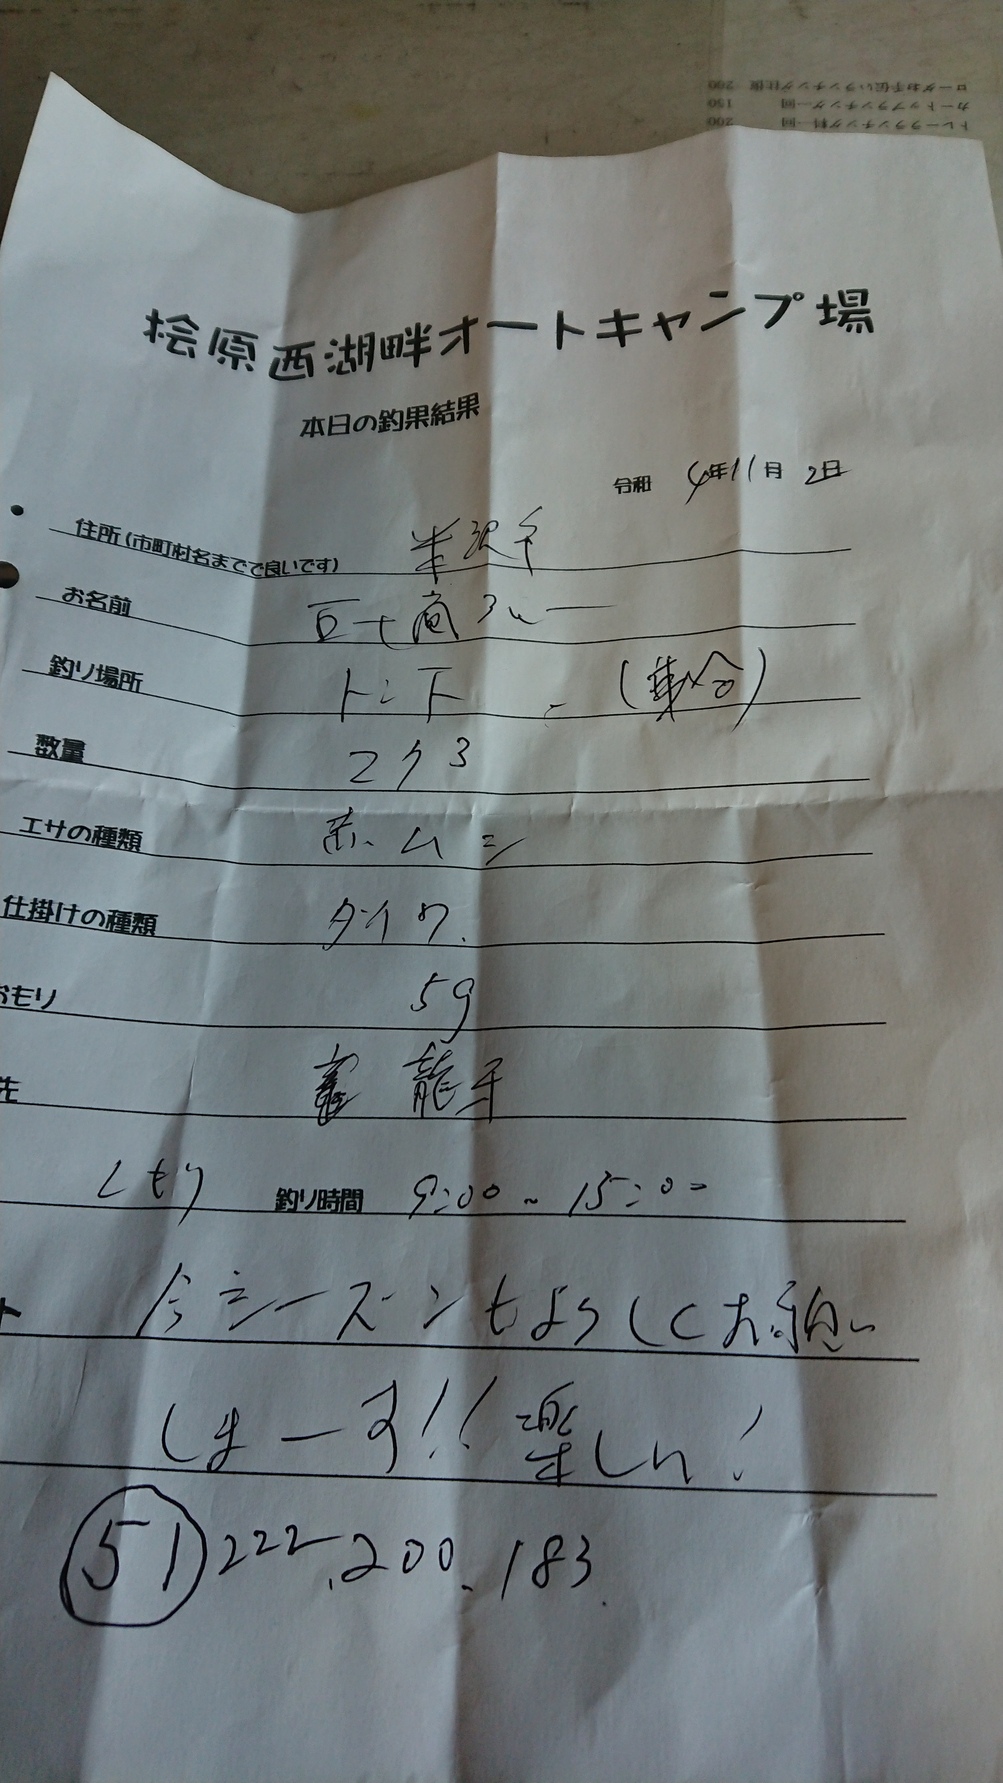 桧原西湖畔オートキャンプ場
本日の釣果結果
令和 4年11月2日
住所(市町村名までで良いです) 米沢市
お名前
釣り場所
数量 293
エサの種類 赤ムシ
仕掛けの種類 ダイワ
おもり 5g
先 龍牙
くもり 釣り時間 9:00~15:00
ト 今シーズンもよろしくお願い
しまーす!! 楽しい!
51 222.200.183
ロープお手伝いランチング仕度 200
カートップランチング一回 150
トレーラランチング料一回 200